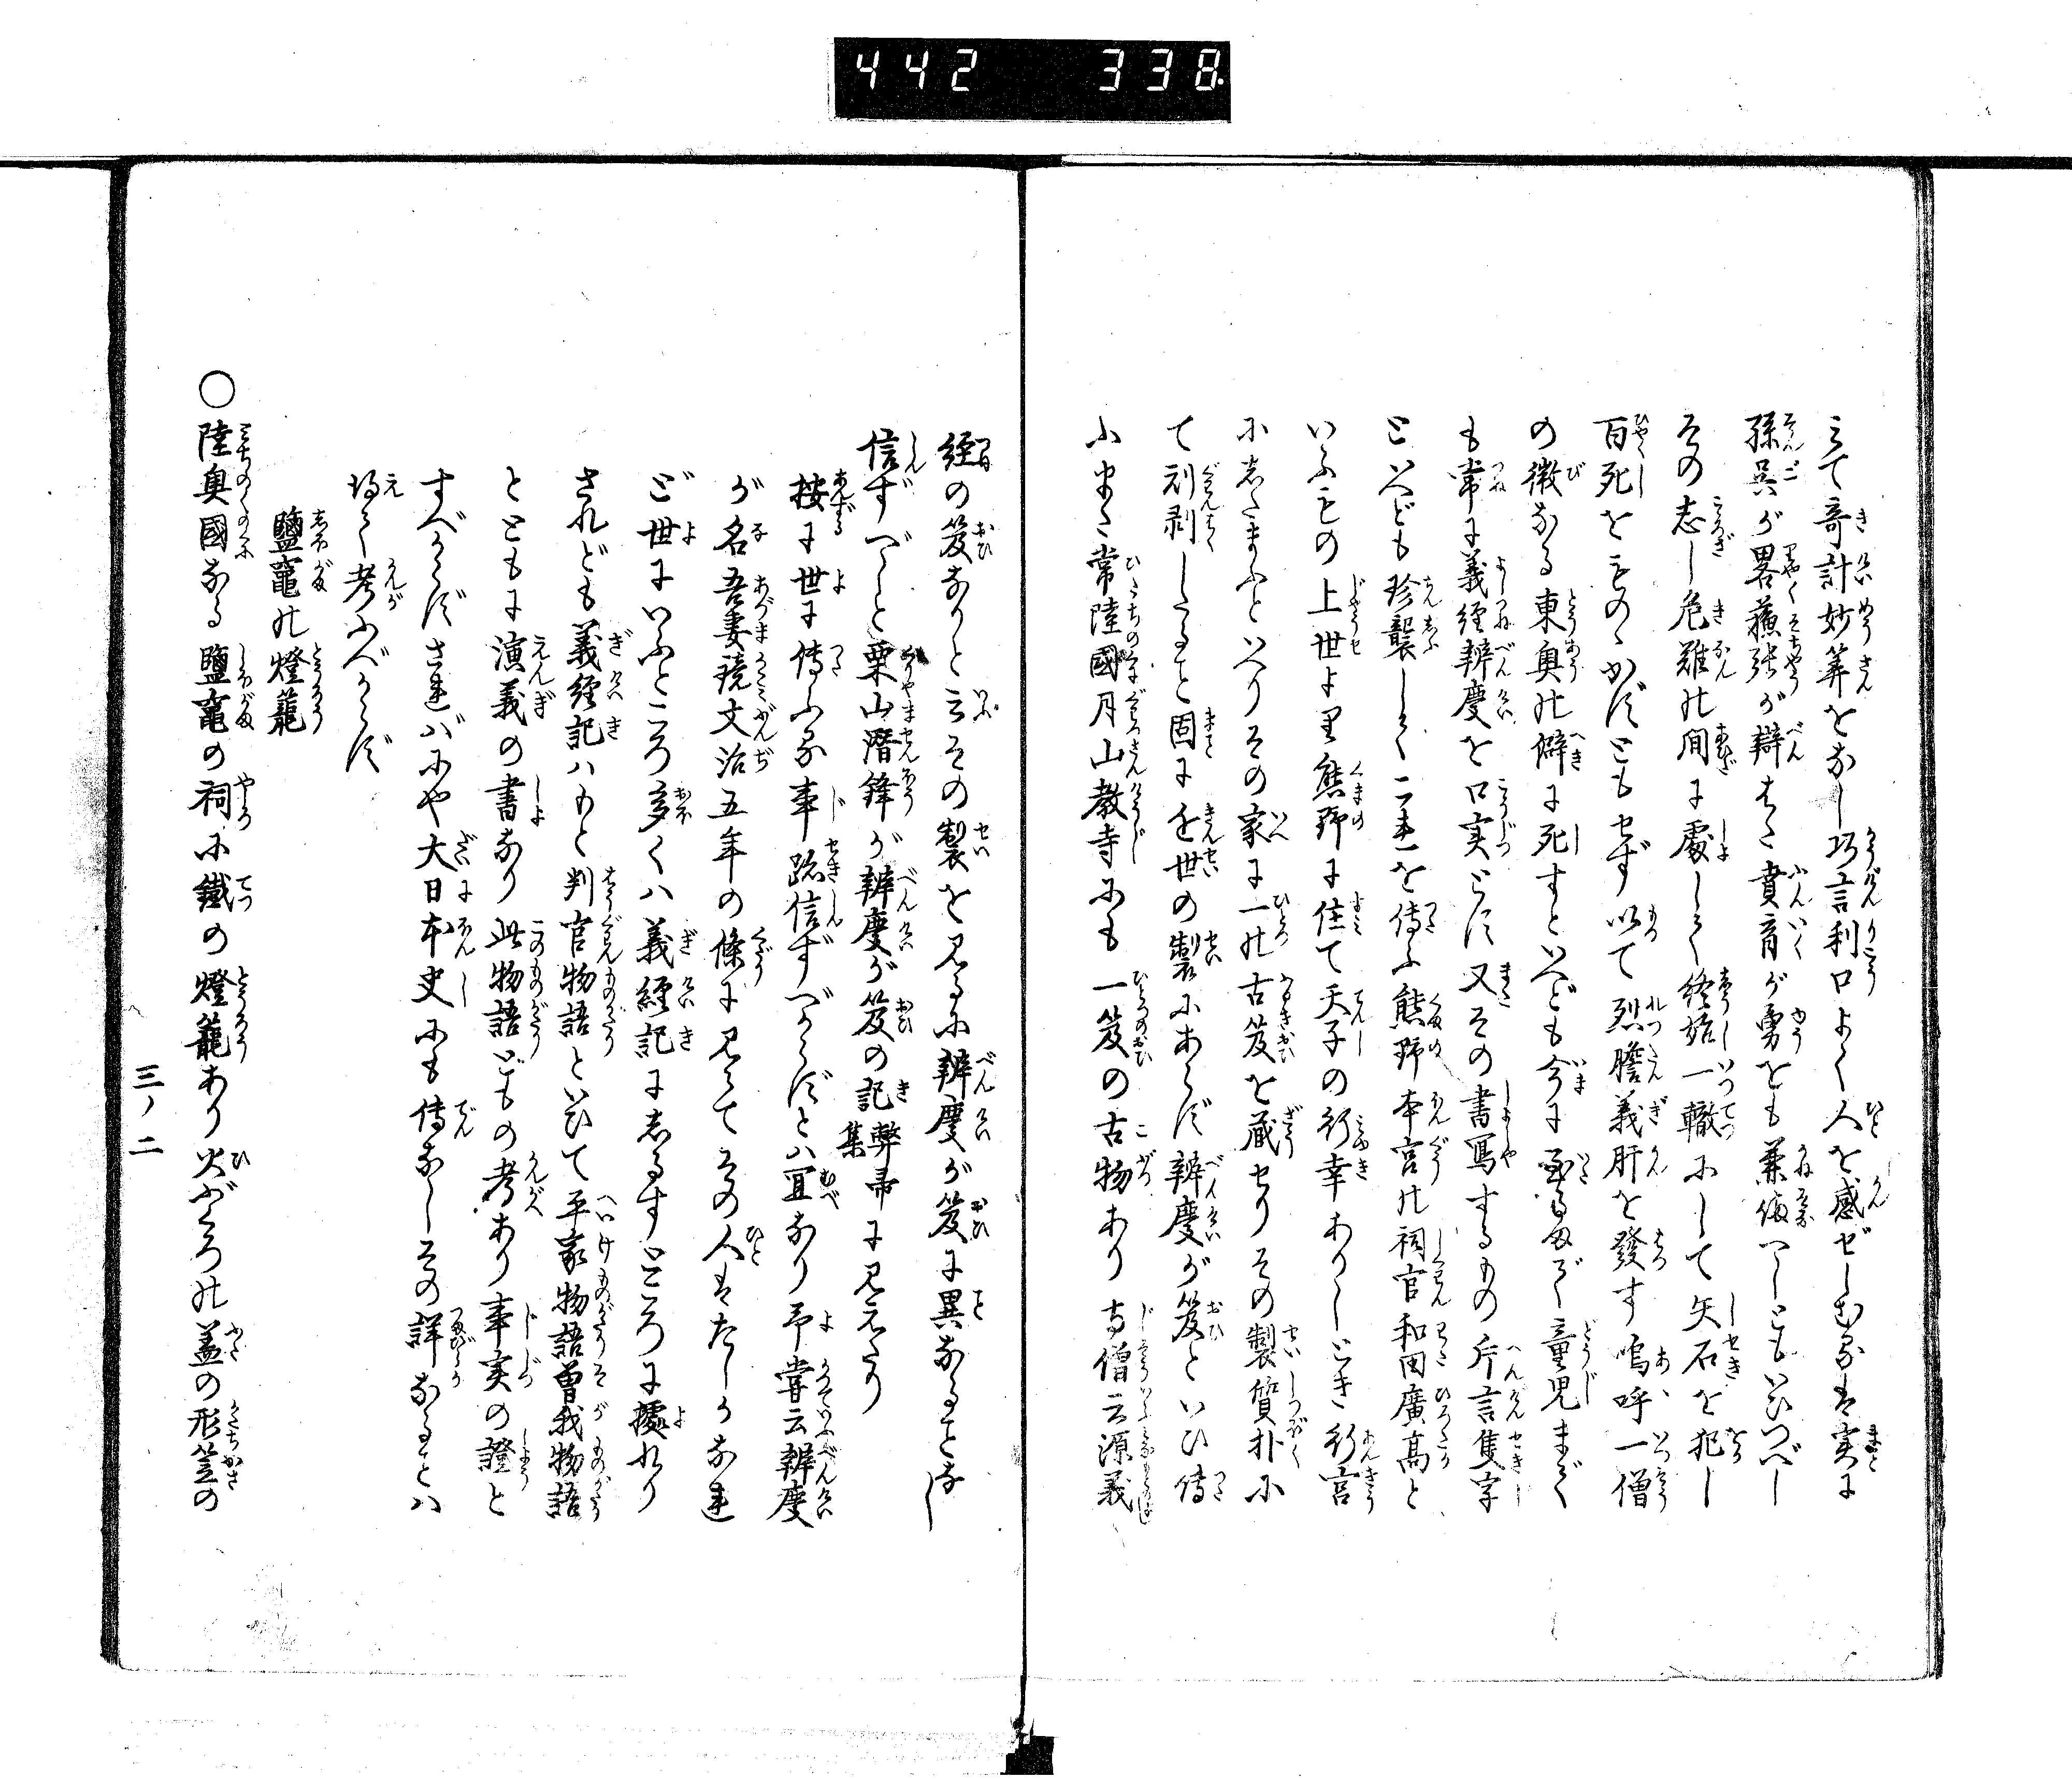 442 338
えて奇計妙筭をなし巧言利口よく人を感ぜしむるは実に
孫呉が畧蘓張が辯はた賁育が勇をも兼備へしともいひつべし
その志し危難の間に處しく終始一轍にして矢石を犯し
百死をものゝかずともせず以て烈膽義肝を發す嗚呼一僧
の微なる東奥の僻に死すといへども今に至るまで童児まで
も常に義經辨慶を口実とす又その書写するもの片言隻字
といへども珍襲しくこれを傳ふ熊野本宮の祠官和田廣髙と
いふもの上世より熊野に住て天子の行幸ありしとき行宮
にしたまふといへりその家に一の古笈を蔵せりその製質朴に
て刓剥したること固に近世の製にあらず辨慶が笈といひ傳
ふまた常陸國月山教寺にも一笈の古物あり寺僧云源義
經の笈なりと云その製を見るに辨慶が笈に異なることなし
信ずべしと栗山潜鋒が辨慶が笈の記弊帚集に見えたり
按に世に傳ふる事跡信ずべからずとは冝なり予嘗云辨慶
が名吾妻鏡文治五年の條に見えてその人はたしかなれ
ど世にいふところ多くは義經記にしるすところに據れり
されども義經記はもと判官物語といひて平家物語曽我物語
とともに演義の書なり此物語どもの考あり事実の證と
すべからずさればにや大日本史にも傳なしその詳なることは
得て考ふべからず
鹽竃の燈籠
○陸奥國なる鹽竃の祠に鐵の燈籠あり火ぶくろの盖の形笠の
三ノ二